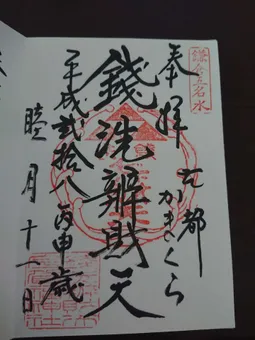 鎌倉五名水
奉拝
古都
かまくら
銭洗辨財天
平成弐拾八丙申歳
睦月十一日